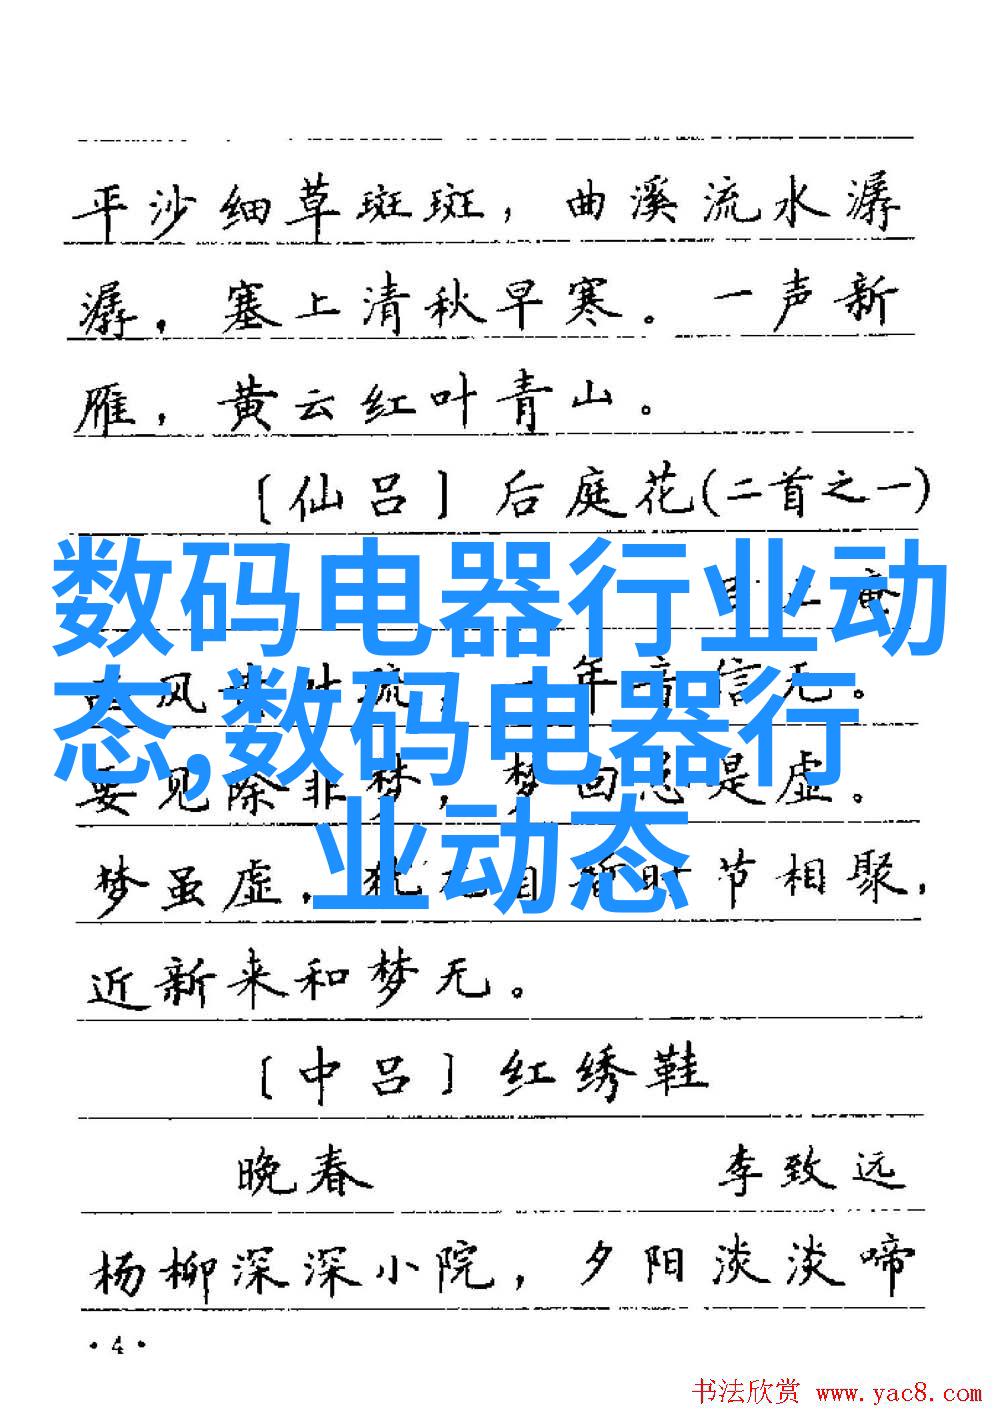 平沙细草斑斑，曲溪流水潺
潺，塞上清秋早寒。一声新
雁，黄云红叶青山。
〔仙吕〕后庭花(二首之一)
数码电器行业动
态,数码电器行
业动态
风 疏，一年音信无。
要见除非梦，梦回总是虚。
梦虽虚，犹 自暂时节相聚，
近新来和梦无。
〔中吕〕红绣鞋
晚春 李致远
杨柳深深小院，夕阳淡淡啼
·4·
书法欣赏 www.yac8.com